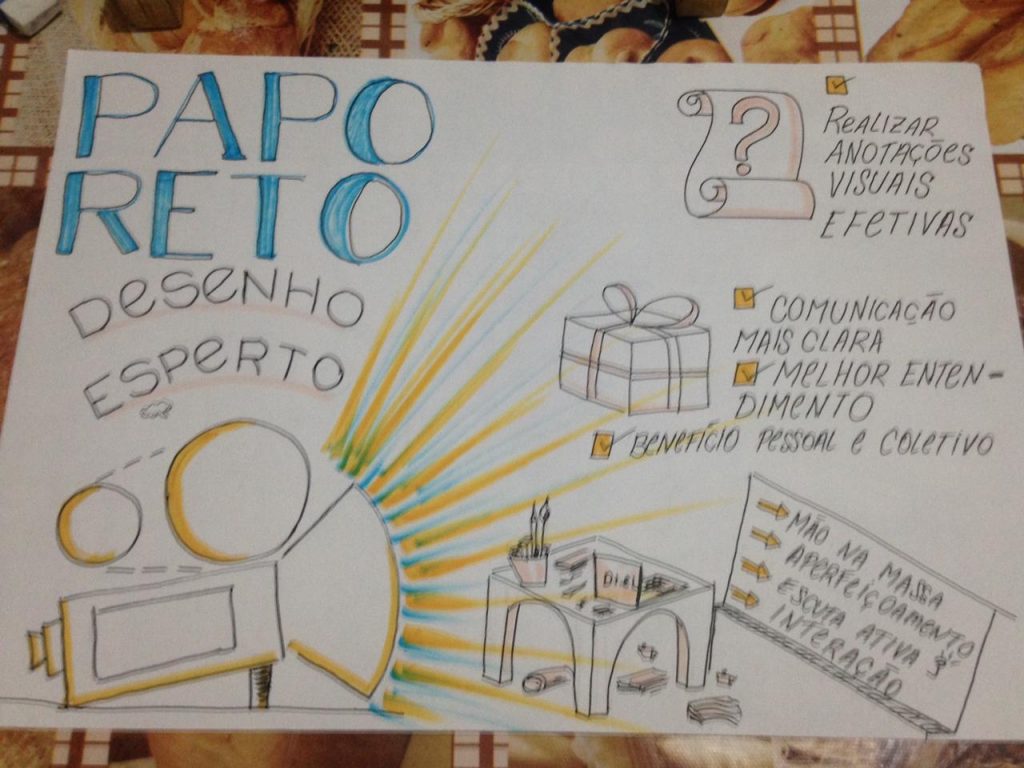 PAPO
RETO
DESENHO
ESPERTO
?
REALIZAR
ANOTAÇÕES
VISUAIS
EFETIVAS
COMUNICAÇÃO
MAIS CLARA
MELHOR ENTEN-
DIMENTO
BENEFÍCIO PESSOAL E COLETIVO
MÃO NA MASSA
APERFEIÇOAMENTO
ESCUTA ATIVA &
INTERAÇÃO